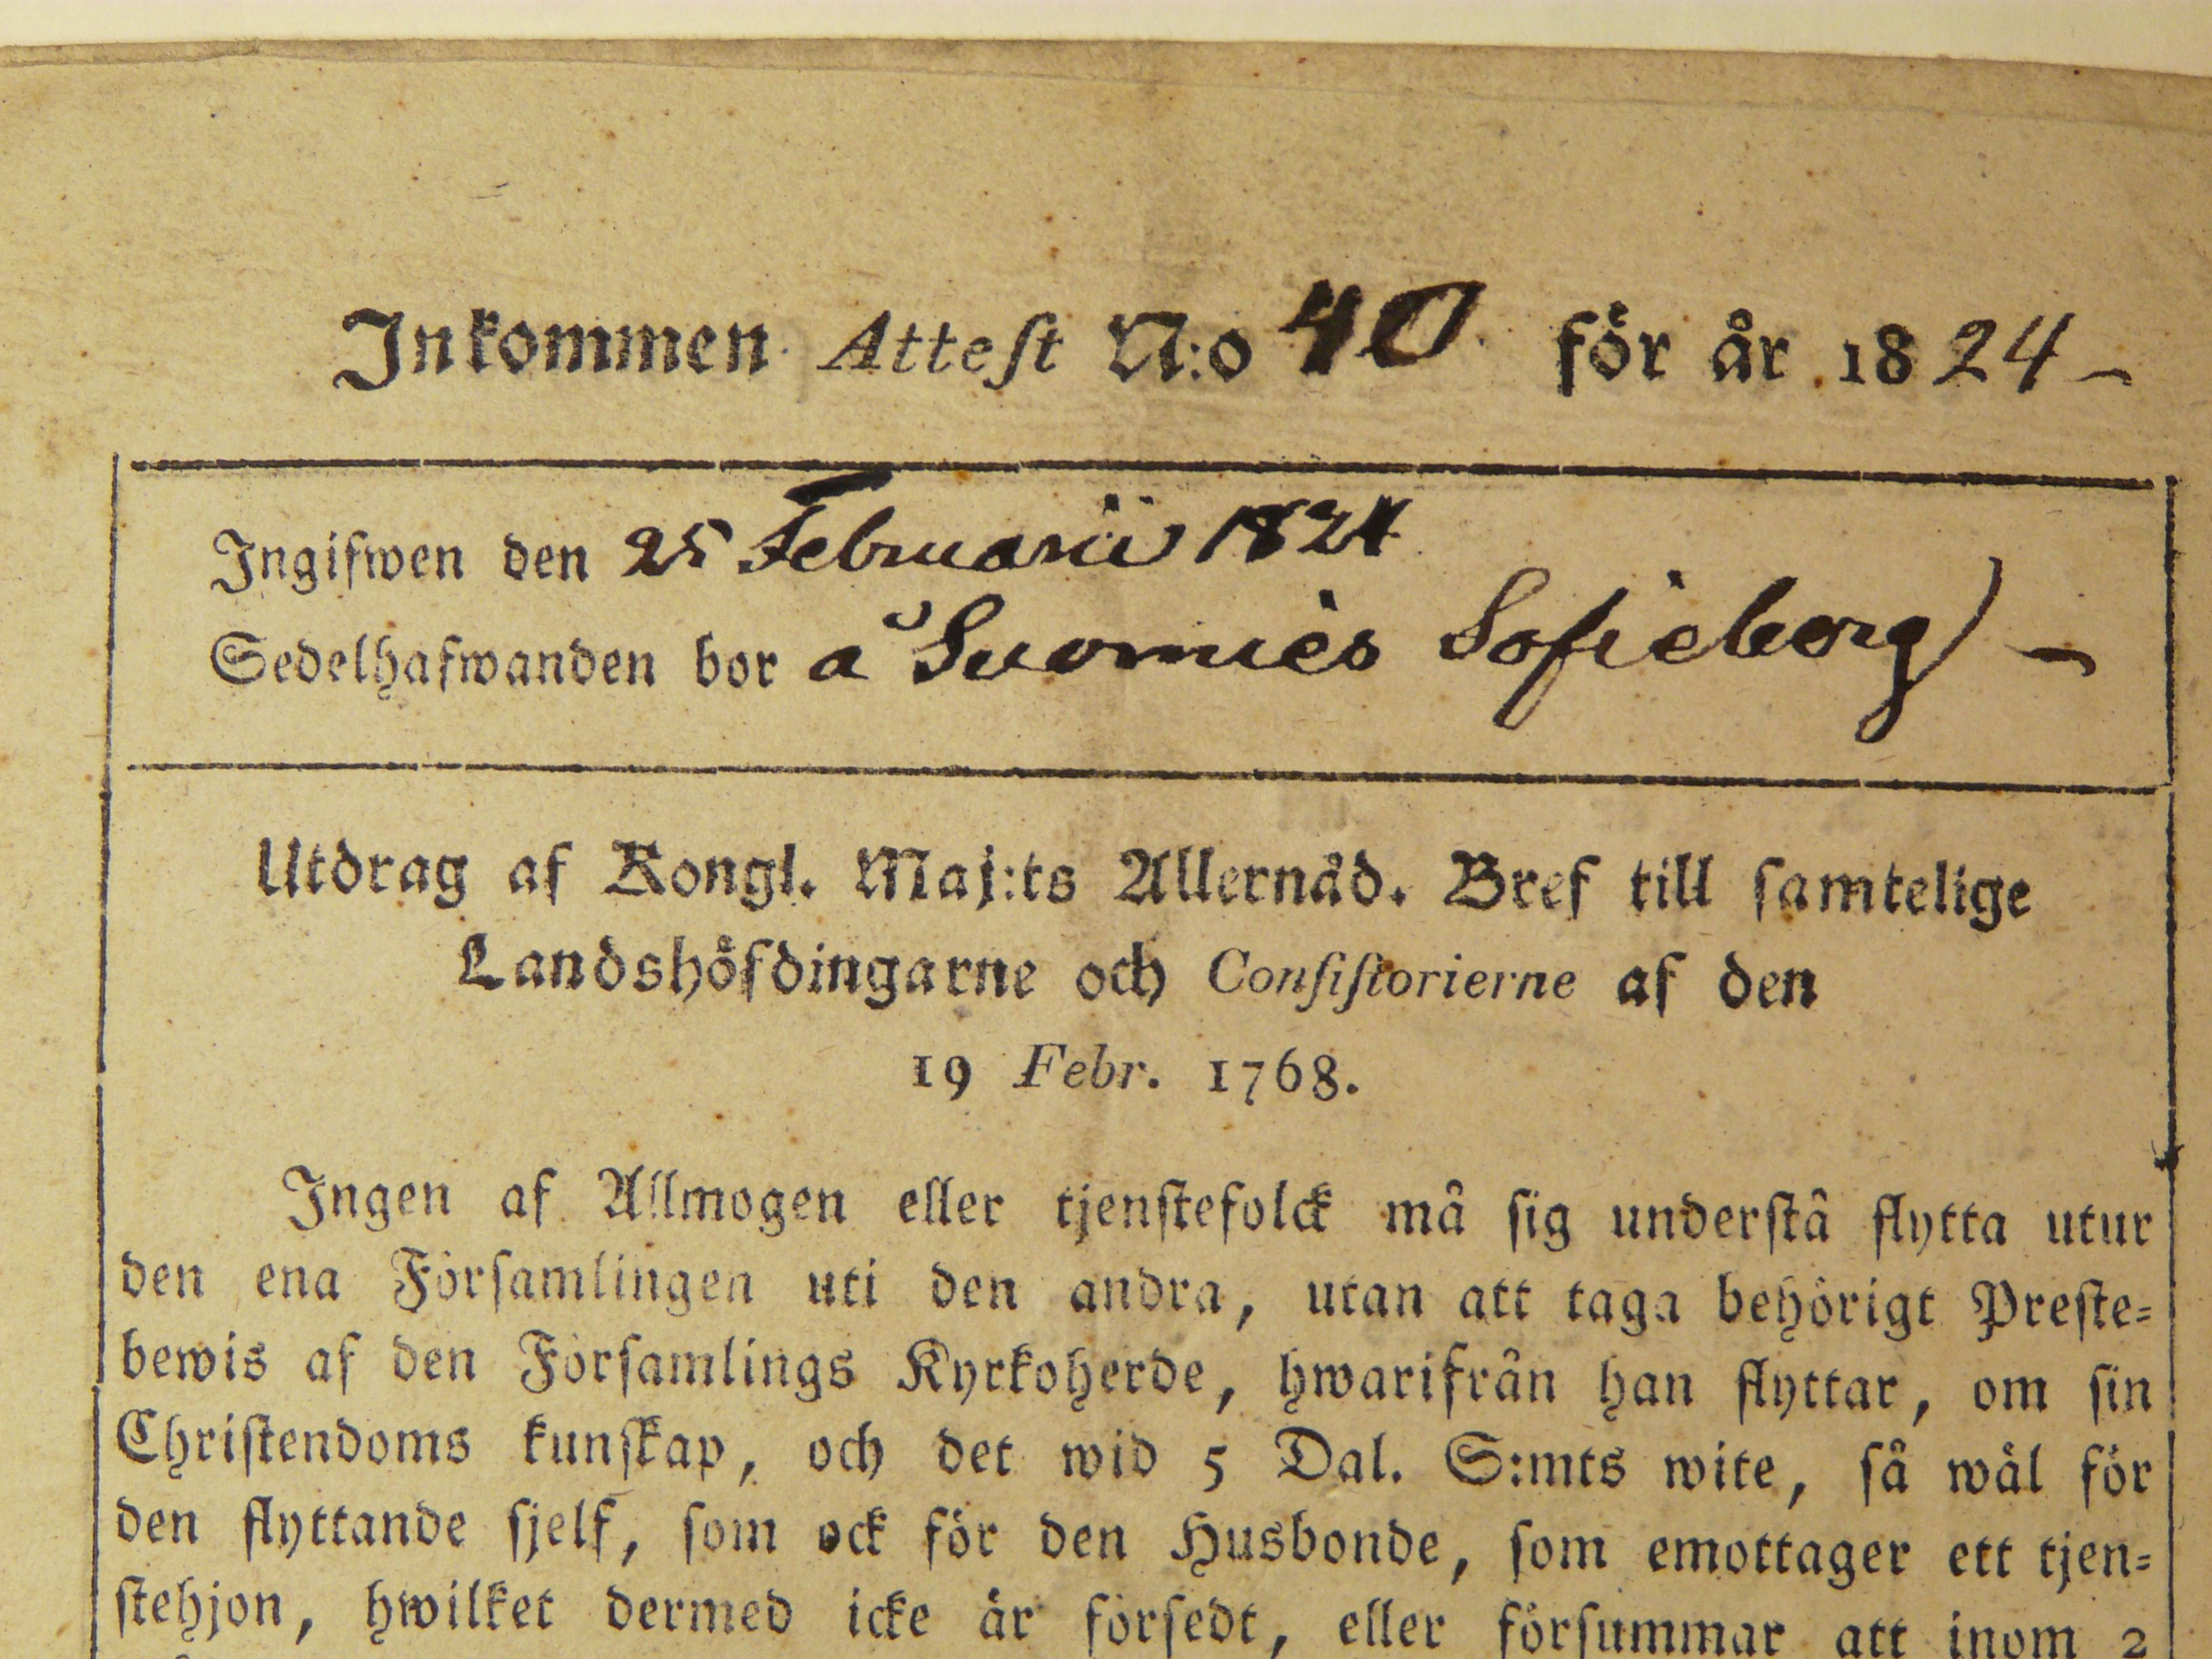 Inkommen Attest N:o 40 för år 1824 –
Ingifwen den 25 Februarii 1824
Sedelhafwanden bor å Suomies Sofieborg –
Utdrag af Kongl. Maj:ts Allernåd. Bref till samtelige
Landshöfdingarne och Consistorierne af den
19 Febr. 1768.
Ingen af Allmogen eller tjenstefolck må sig understå flytta utur
den ena Församlingen uti den andra, utan att taga behörigt Preste-
bewis af den Församlings Kyrkoherde, hwarifrån han flyttar, om sin
Christendoms kunskap, och det wid 5 Dal. S:mts wite, så wäl för
den flyttande sjelf, som ock för den Husbonde, som emottager ett tjen-
stehjon, hwilket dermed icke är försedt, eller försummar att inom 2